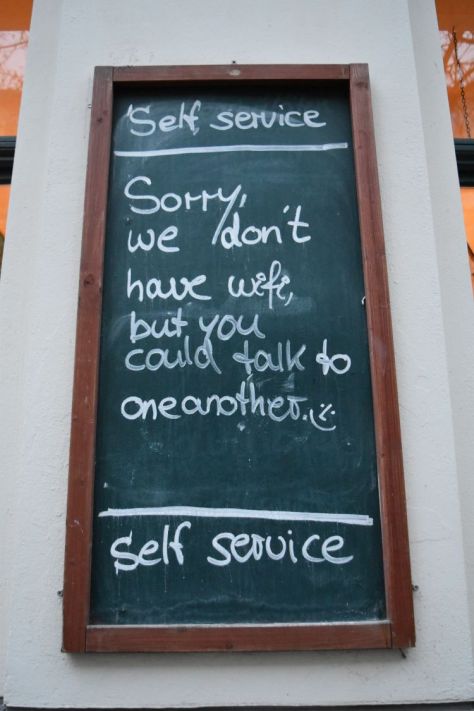 Self service
Sorry,
we don't
have wifi,
but you
could talk to
one another. :)
self service